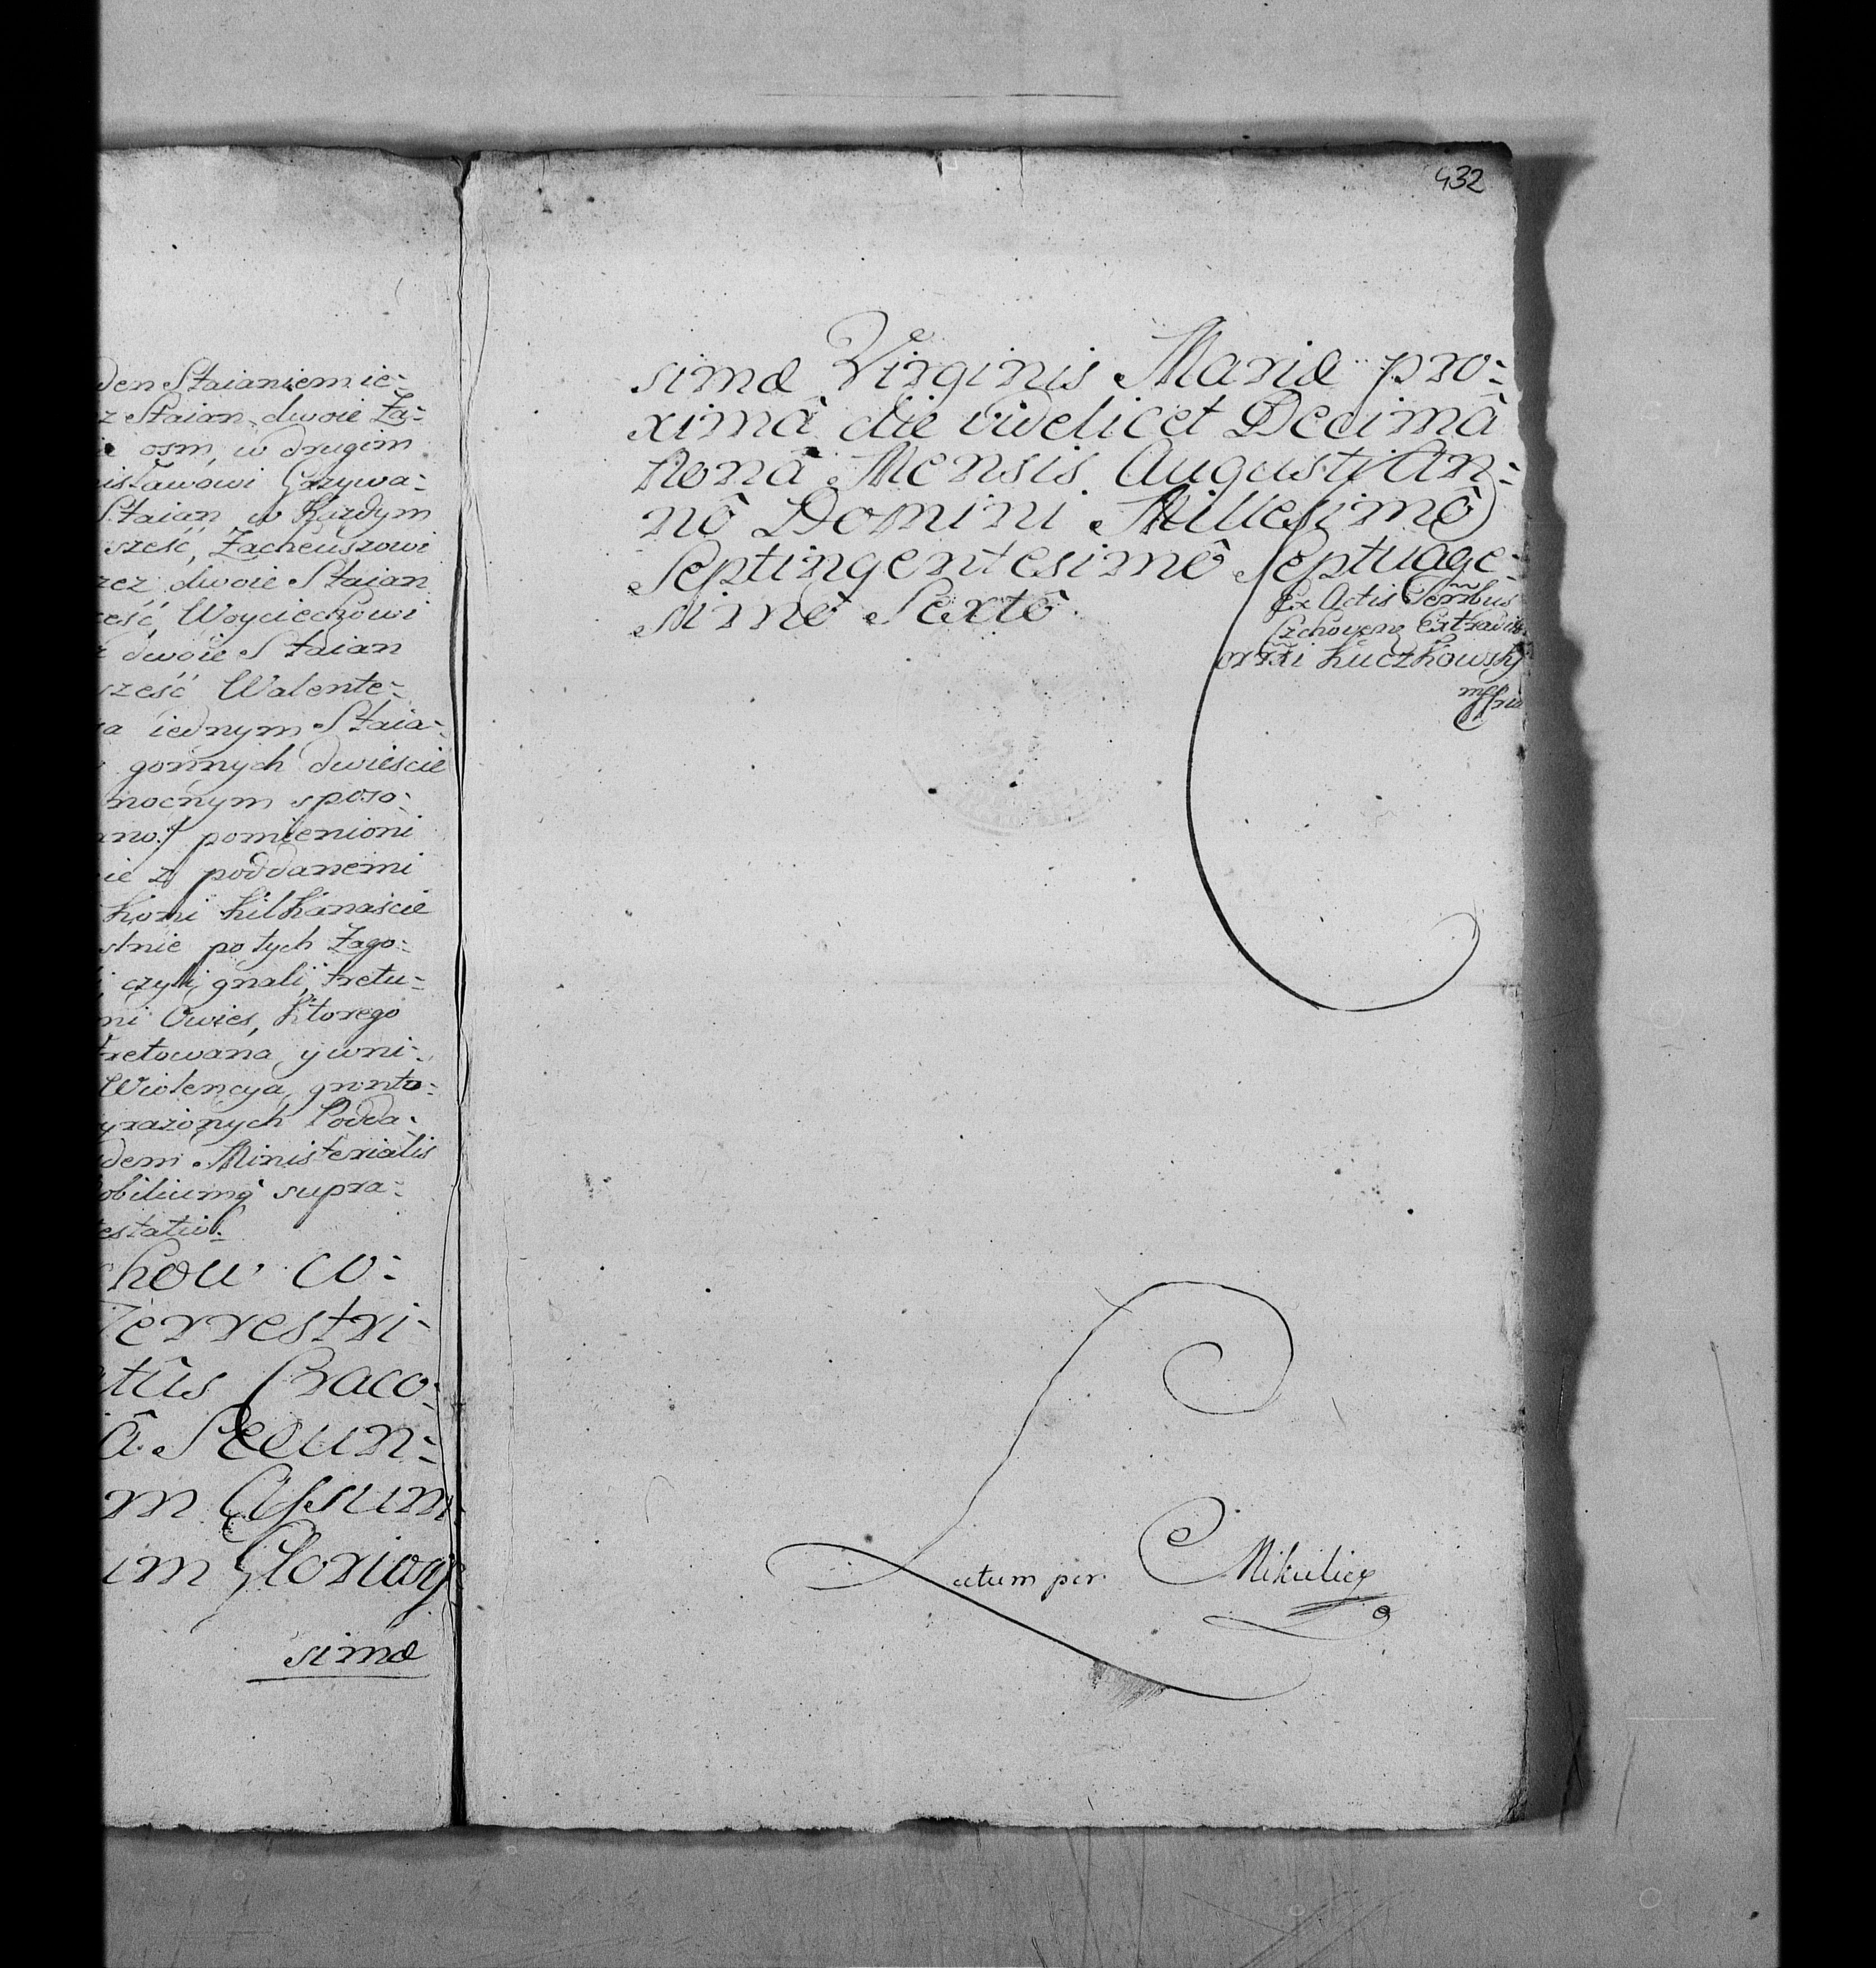 den Staianiem ie:
z Staian dwoie Za:
osm, w drugim
isławowi Grzywa:
Staian w Każdym
sześć, Zacheuszowi
rzez dwoie Staian
eść, Woyciechowi
dwoie Staian
sześć Walente:
a iednym Staia:
gonnych dwieście
mocnym sposo:
ano./ pomienioni
ie z poddanemi
Koni Kilkanaście
stnie po tych Zago:
czyli gnali, tretu:
mi Owies, Ktorego
tretowana, y wni:
Wiolencya grunto:
yrażonych Podda:
dem Ministerialis
obiliumq̃ supra:
testatiô.
chow co:
Terrestri:
tûs Craco:
â Secun:
m Assum
im Glorioss
simæ
432
simæ Virginis Mariæ pro:
ximâ die videlicet Decimâ
Nonâ Mensis Augusti An:
nô Domini Millesimô
Septingentesimô Septuage:
simô Sextô.
Ex Actis Terr̃bus
Czchoven̄ Extradit
Corr̃xi Kuczkowsky
mppria
Lectum per Mikulicz